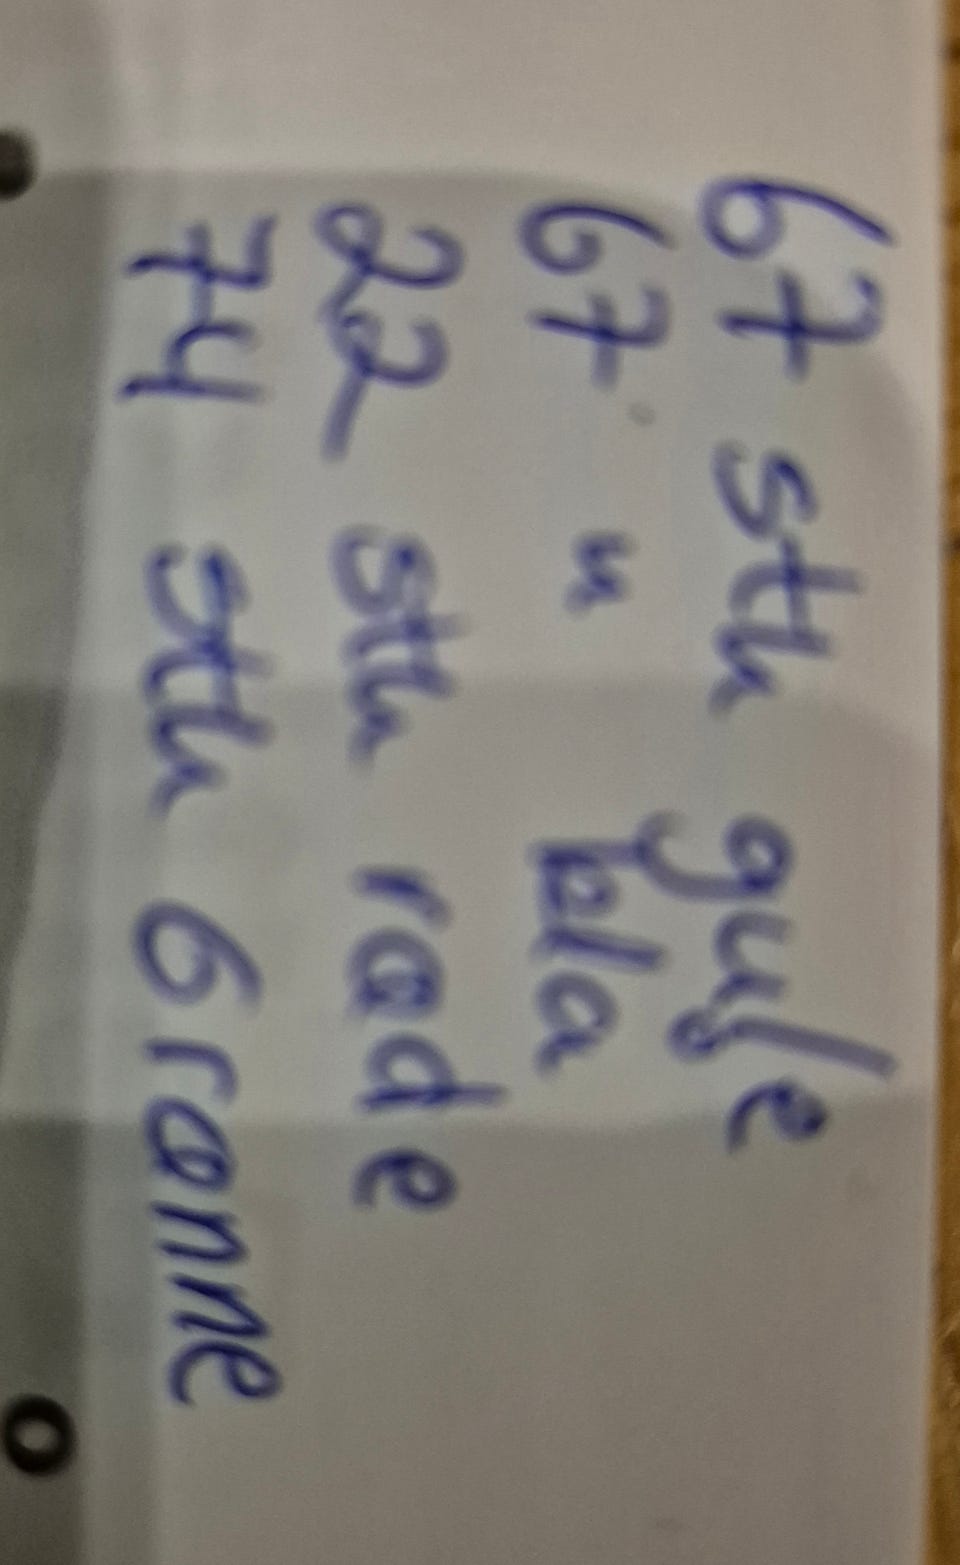 67 stk gule
67 " bla
22 stk rade
74 stk Grønne